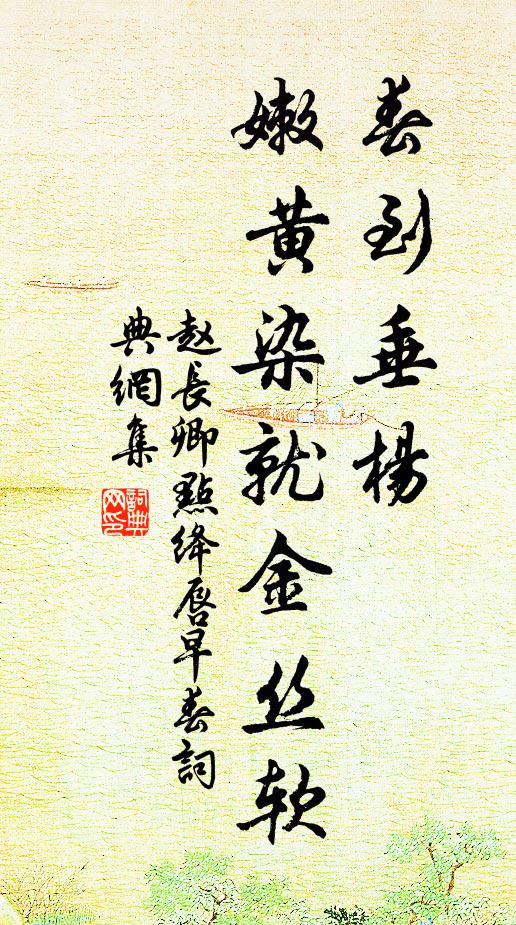 春到垂楊
嫩黄染就金丝软
赵長卿點绛唇早春詞
典網集
詞典网印